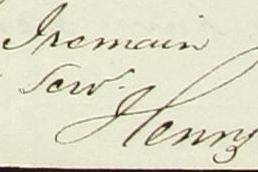 I remain
Serv.
Henry